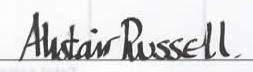 Alistair Russell.